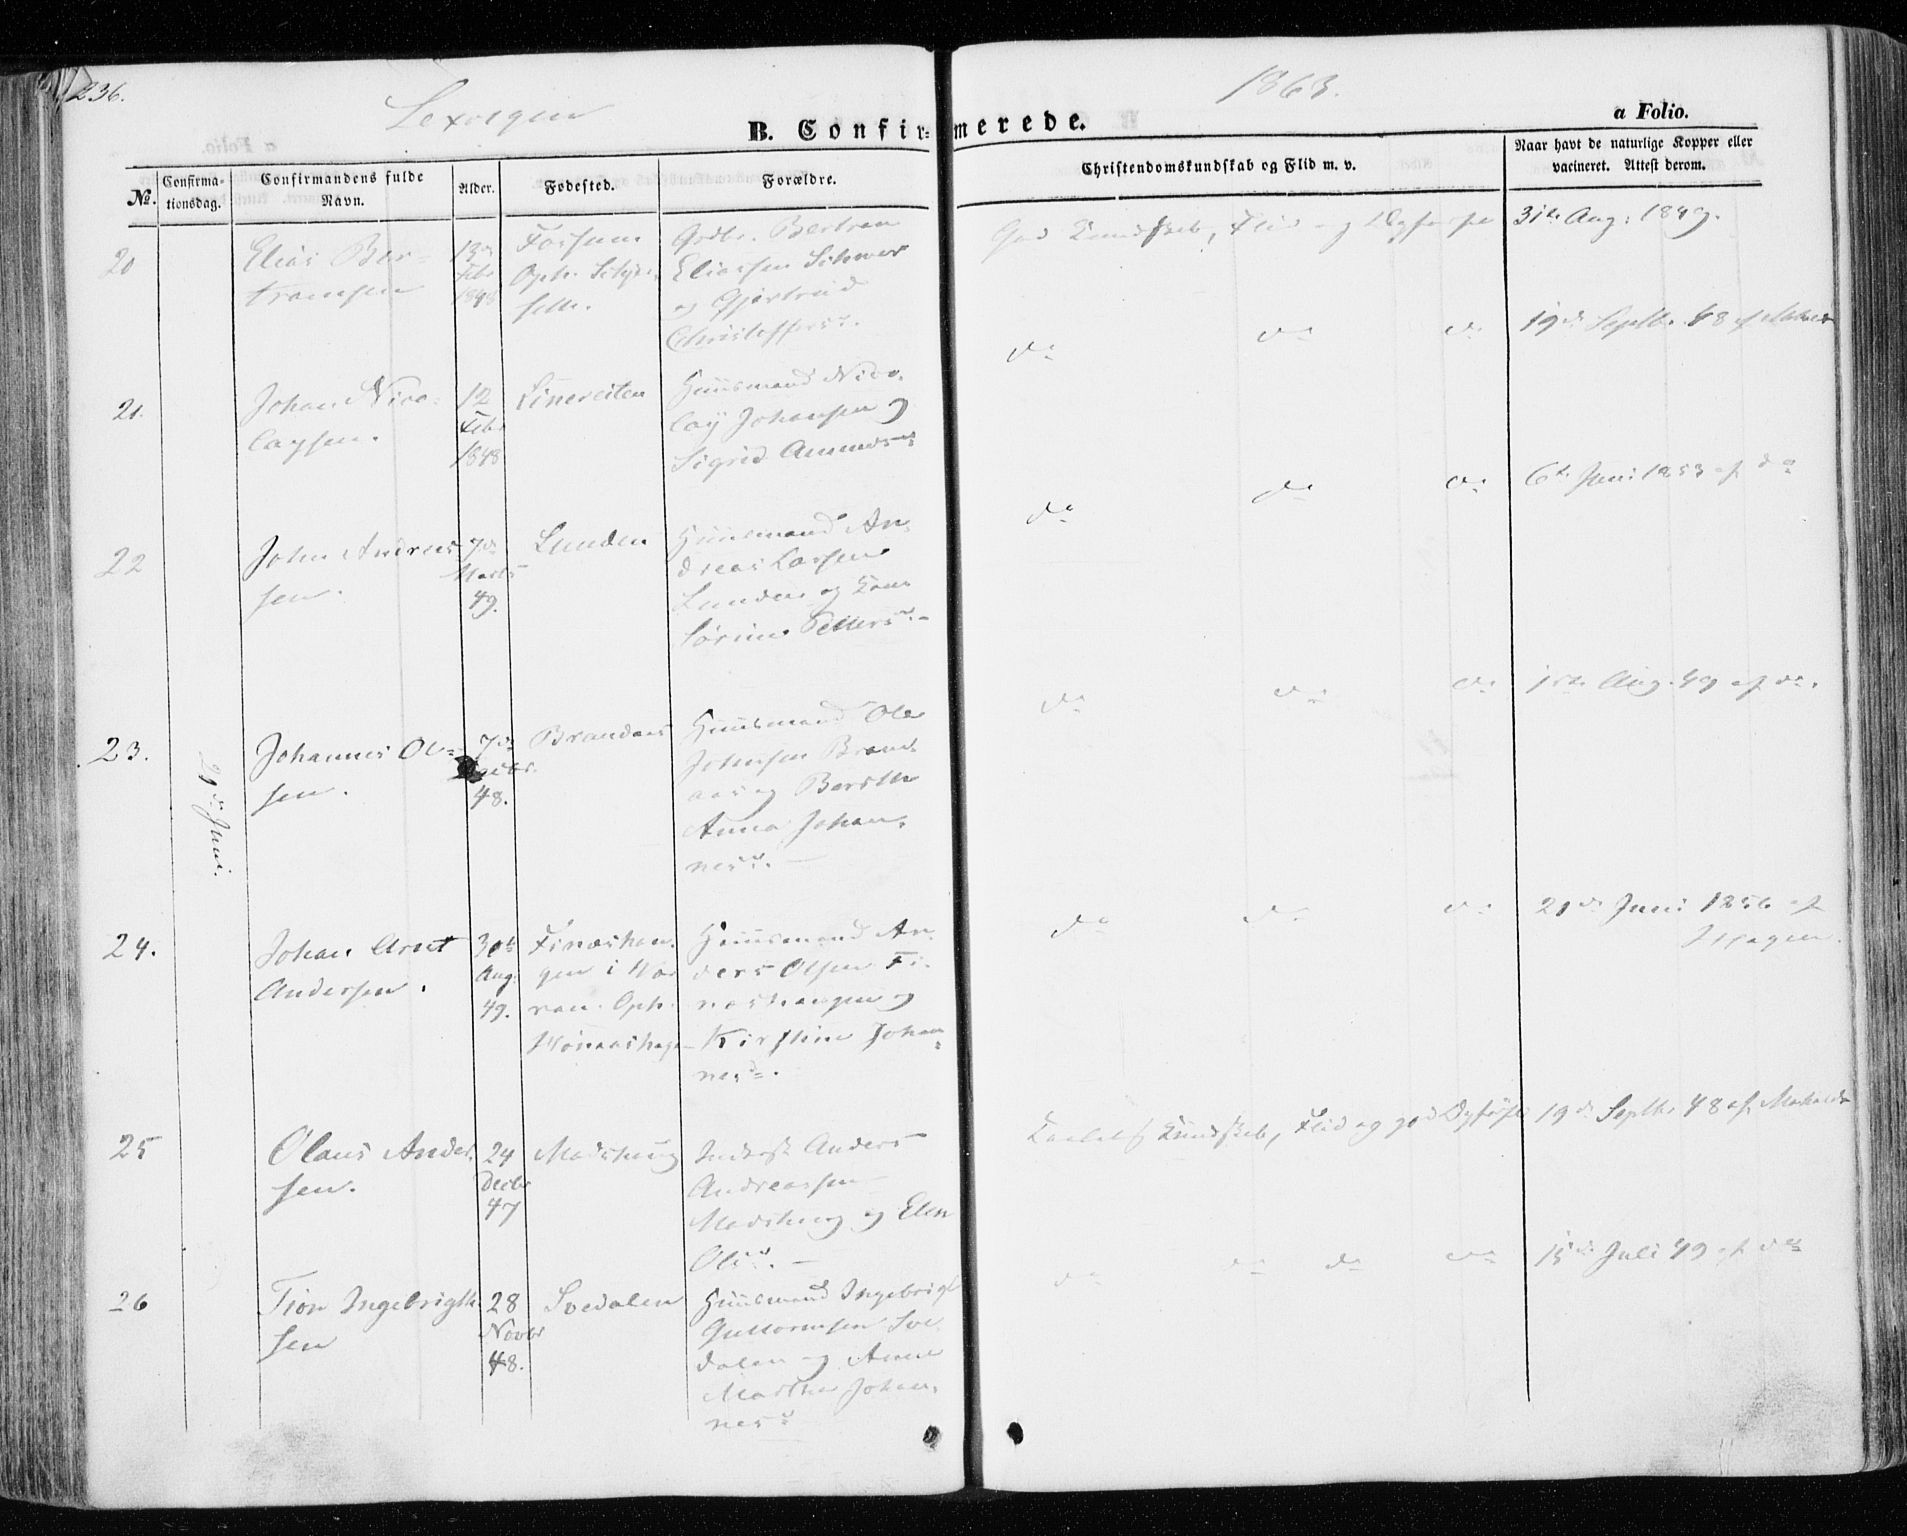 236.
Lexvigen
1863.
B. Confirmerede.
a Folio.
No.
Confirmationsdag.
Confirmandens fulde Navn.
Alder.
Fødested.
Forældre.
Christendomskundskab og Flid m. v.
Naar havt de naturlige Kopper eller
vacineret. Attest derom.
20
Elias Ber-
tramsen
13de
Febr
1848
Fossum
Oph.
Grdbr. Bertran
Eliassen
og Gjertrud
Christoffersd.
God Kundskab, Flid og Opførsel
31te Aug: 1849.
21.
Johan Nico-
laysen.
12
Febr
1848
Linereiten
Huusmand Nico-
lay Johansen og
Sigrid
do do do
19de Septbr. 48 af
22
John Andreas
sen.
7de
Marts
49.
Lunden
Huusmand An-
dreas Larsen
Lunden og
Sørine Petersd.
do do do
6te Juni 1853 af do
29de Juni.
23.
Johannes Ol-
sen.
7de
48.
Brandaas
Huusmand Ole
Johnsen Brand-
aas og
Anna Johan-
nesd.
do do do
Aug. 49 af do.
24.
Johan Arnt
Andersen.
30te
Aug.
49.
Finæshan-
gen i
Oph.
Huusmand An-
ders Olsen Fi-
næshangen og
Kirstine Johan-
nesd.
do do do
21de Juni 1856 af
25
Olaus Ander-
sen.
24
Decbr
47
Madshaug
Inderst Anders
Andreassen
Madshaug og Elen
Olsd.
Kundskab, Flid og god Opførsel
19de Septbr. 48 af
26
Tion Ingebrigt-
sen
28
Novbr
48.
Svedalen
Huusmand Ingebrigt
Guttormsen Sve-
dalen og Anne
Martha Johan-
nesd
do do do do
15de Juli 49 af do